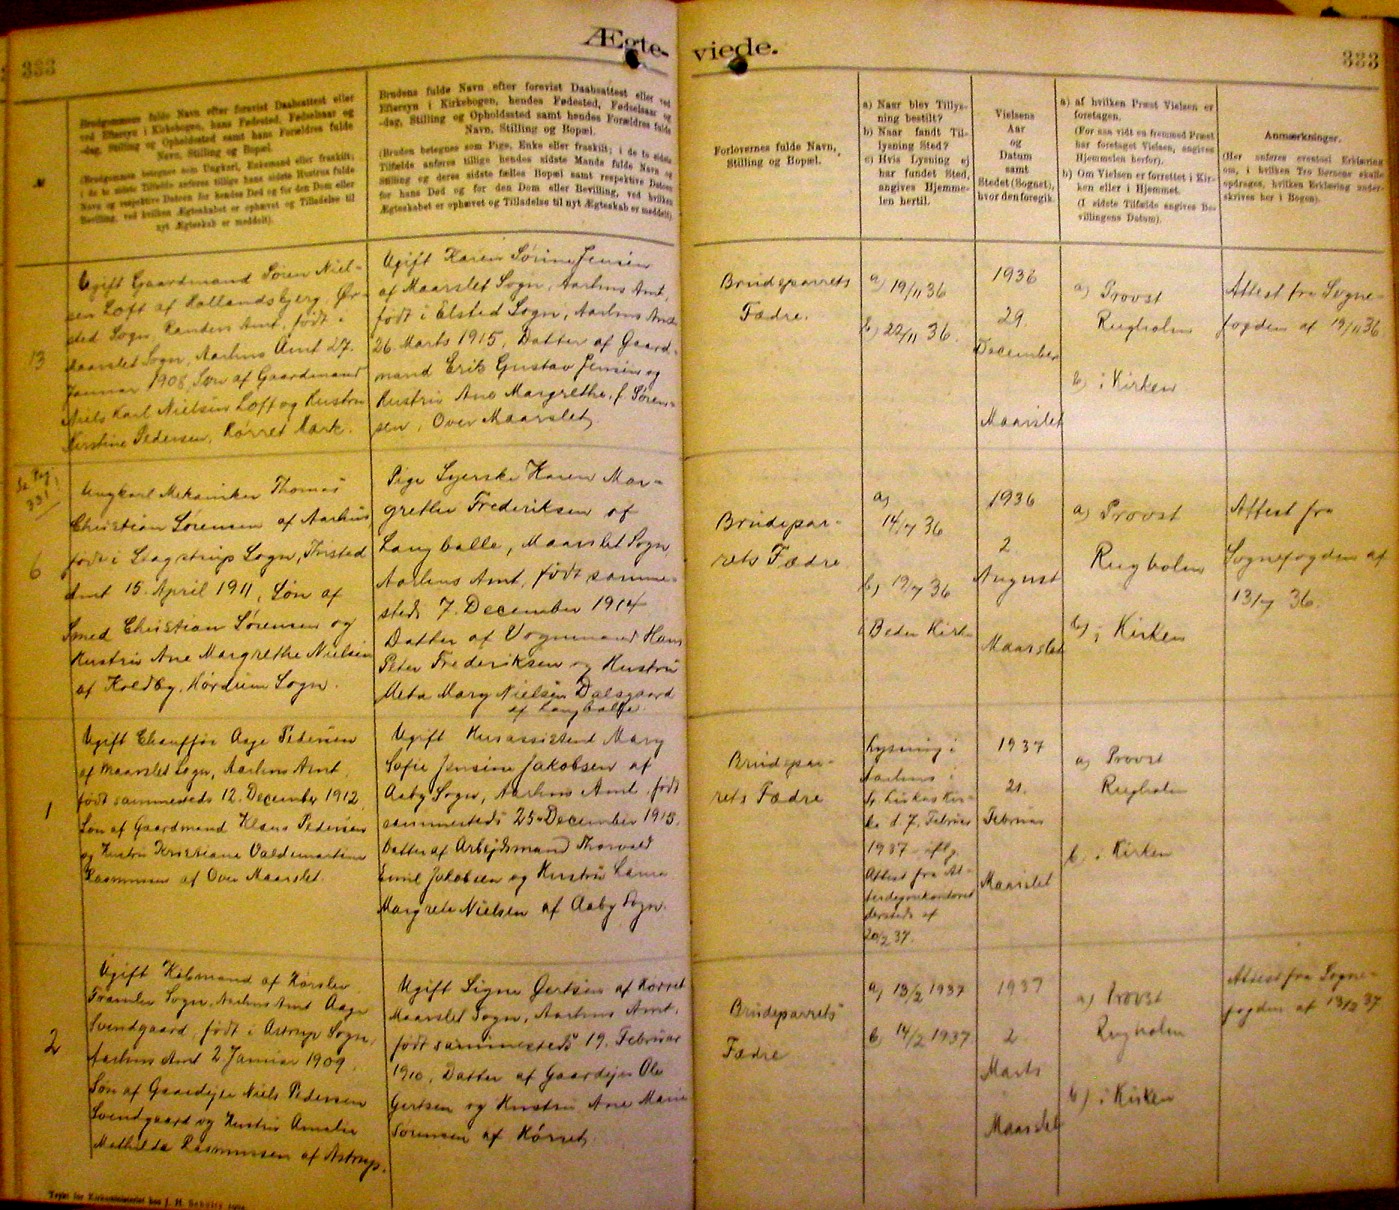 333
Ægte-
Brudgommens fulde Navn efter forevist Daabsattest eller
ved Eftersyn i Kirkebogen, hans Fødested, Fødselsaar og
-dag, Stilling og Opholdssted samt hans Forældres fulde
Navn, Stilling og Bopæl.
(Brudgommen betegnes som Ungkarl, Enkemand eller fraskilt;
i de to sidste Tilfælde anføres tillige hans sidste Hustrus fulde
Navn og respektive Datoen for hendes Død og for den Dom eller
Bevilling, ved hvilken Ægteskabet er ophævet og Tilladelse til
nyt Ægteskab er meddelt).
Brudens fulde Navn efter forevist Daabsattest eller ved
Eftersyn i Kirkebogen, hendes Fødested, Fødselsaar og
-dag, Stilling og Opholdssted samt hendes Forældres fulde
Navn, Stilling og Bopæl.
(Bruden betegnes som Pige, Enke eller fraskilt; i de to sidste
Tilfælde anføres tillige hendes sidste Mands fulde Navn og
Stilling og deres sidste fælles Bopæl samt respektive Datoen
for hans Død og for den Dom eller Bevilling, ved hvilken
Ægteskabet er ophævet og Tilladelse til nyt Ægteskab er meddelt)
13
Ugift Gaardmand Søren Niel-
sen Loft af Hollandsbjerg, Ør-
sted Sogn, Randers Amt, født i
Maarslet Sogn, Aarhus Amt 27.
Januar 1908, Søn af Gaardmand
Niels Karl Nielsen Loft og Hustru
Kirstine Pedersen, Hørret Mark.
Ugift Karen Sørine Jensen
af Maarslet Sogn, Aarhus Amt,
født i Elsted Sogn, Aarhus Amt
26. Marts 1915, Datter af Gaard-
mand Erik Gustav Jensen og
Hustru Ane Margrethe, f. Søren-
sen, Over Maarslet,
Se Pag
331!
6
Ungkarl Mekaniker Thomas
Christian Sørensen af Aarhus
født i Sogn, Thisted
Amt 15. April 1911, Søn af
Smed Christian Sørensen og
Hustru Ane Margrethe Nielsen
af Koldby, Hørdum Sogn.
Pige Syerske Karen Mar-
grethe Frederiksen af
Langballe, Maarslet Sogn
Aarhus Amt, født samme-
steds 7. December 1914
Datter af Vognmand Hans
Peter Frederiksen og Hustru
Meta Mary Nielsen Dalsgaard
af Langballe.
1
Ugift Chauffør Aage Pedersen
af Maarslet Sogn, Aarhus Amt,
født sammesteds 12. December 1912,
Søn af Gaardmand Klaus Pedersen
og Hustru Kristiane Valdemartine
Rasmussen af Over Maarslet.
Ugift Husassistent Mary
Sofie Jensine Jakobsen af
Aaby Sogn, Aarhus Amt, født
sammesteds 25. December 1915.
Datter af Arbejdsmand Thorvald
Emil Jakobsen og Hustru Laura
Margrete Nielsen af Aaby Sogn.
2
Ugift Købmand af Hørslev
Framlev Sogn, Aarhus Amt Aage
Svendgaard, født i Astrup Sogn,
Aarhus Amt 2. Januar 1909,
Søn af Gaardejer Niels Pedersen
Svendgaard og Hustru Amalie
Mathilda Rasmussen af Astrup.
Ugift Signe Gertsen af Hørret
Maarslet Sogn, Aarhus Amt,
født sammesteds 19. Februar
1910, Datter af Gaardejer Ole
Gertsen og Hustru Ane Marie
Sørensen af Hørret.
Trykt for Kirkeministeriet hos J. H. Schultz
viede.
333
Forlovernes fulde Navn,
Stilling og Bopæl.
a) Naar blev Tillys-
ning bestilt?
b) Naar fandt Til-
lysning Sted?
c) Hvis Lysning ej
har fundet Sted,
angives Hjemme-
len hertil.
Vielsens
Aar
og
Datum
samt
Stedet (Sognet),
hvor den foregik.
a) af hvilken Præst Vielsen er
foretagen.
(For saa vidt en fremmed Præst
har foretaget Vielsen, angives
Hjemmelen herfor).
b) Om Vielsen er forrettet i Kir-
ken eller i Hjemmet.
(I sidste Tilfælde angives Be-
villingens Datum).
Anmærkninger.
(Her anføres eventuel Erklæring
om, i hvilken Tro Børnene skulle
opdrages, hvilken Erklæring under-
skrives her i Bogen).
Brudeparrets
Fædre.
a) 19/11 36
b) 22/11 36.
1936
29.
December
Maarslet
a) Provst
Rugholm
b) i Kirken
Attest fra Sogne-
fogden af 19/11 36
Brudepar-
rets Fædre
a)
14/7 36
b) 19/7 36
i Beder Kirke
1936
2.
August
Maarslet
a) Provst
Rugholm
b) i Kirken
Attest fra
Sognefogden af
13/7 36.
Brudepar-
rets Fædre
Lysning i
Aarhus i
St. Lukas Kir-
ke d. 7. Februar
1937 iflg.
Attest fra
dersteds af
20/2 37.
1937
21.
Februar
Maarslet
a) Provst
Rugholm
b) i Kirken
Brudeparrets
Fædre
a) 13/2 1937
b) 14/2 1937
1937
2.
Marts
Maarslet
a) Provst
Rugholm
b) i Kirken
Attest fra Sogne-
fogden af 13/2 37